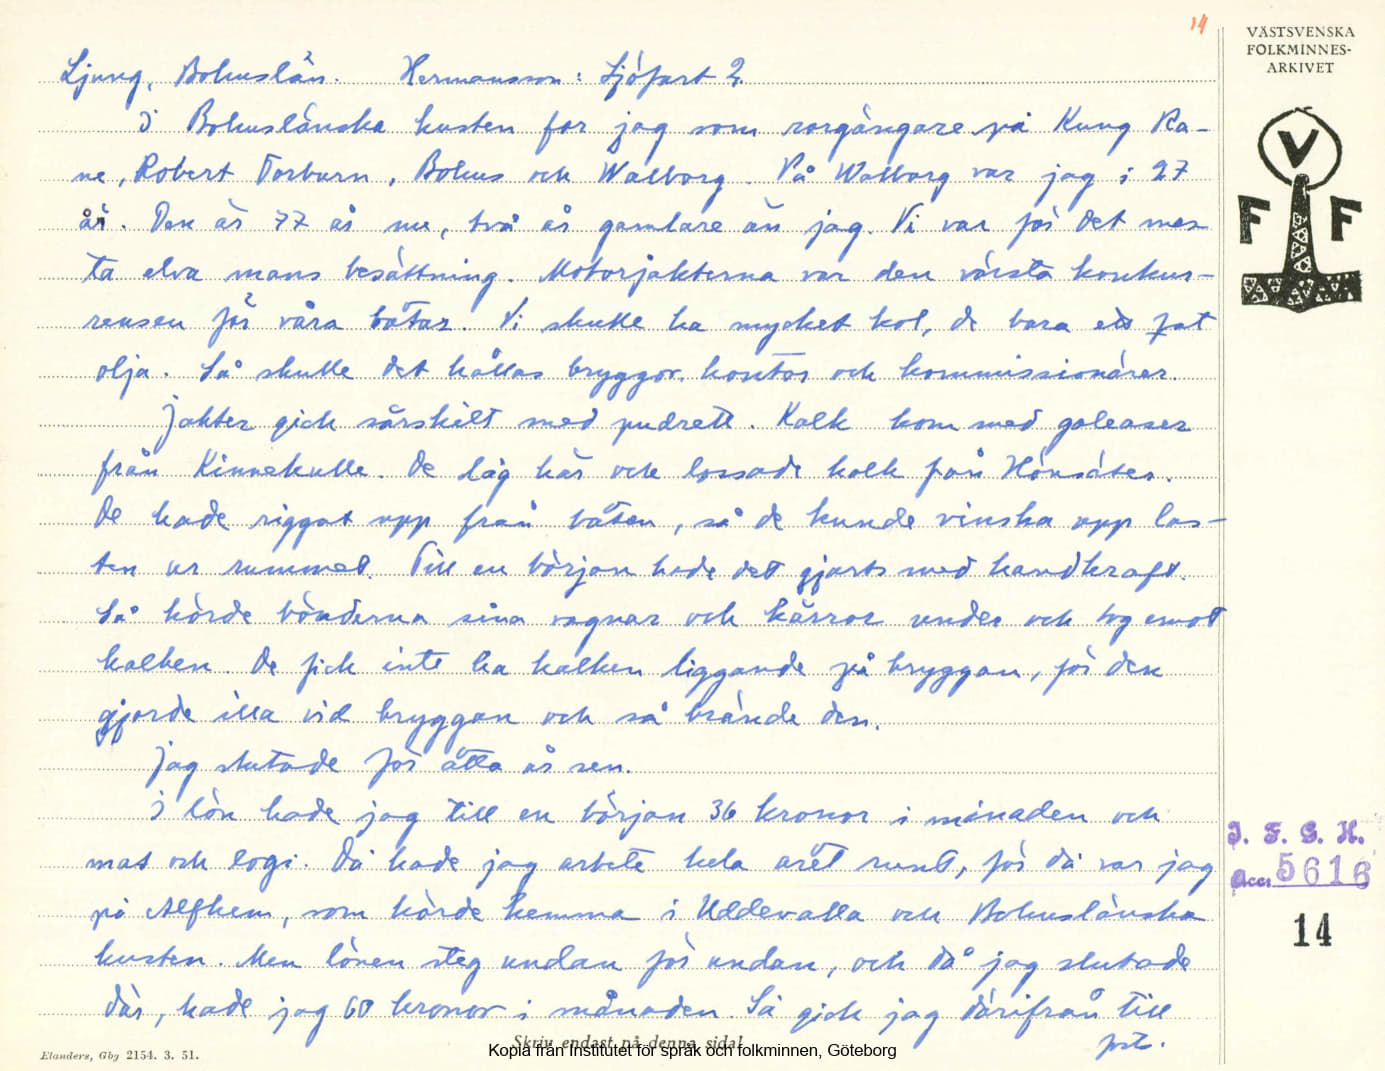 14
VÄSTSVENSKA
FOLKMINNES-
ARKIVET
V
F F
Ljung, Bohuslän. Hermansson: Sjöfart 2.
I Bohuslänska kusten for jag som rorgängare på Kung Ra-
ne, Robert Torburn, Bohus och Walborg. På Walborg var jag i 27
år. Den är 77 år nu, två år gamlare än jag. Vi var för det mes-
ta elva mans besättning. Motorjakterna var den värsta konkur-
rensen för våra båtar. Vi skulle ha mycket kol, de bara ett fat
olja. Så skulle det hållas bryggor, kontor och kommissionärer.
Jakter gick särskilt med pudrett. Kalk kom med galeaser
från Kinnekulle. De låg här och lossade kalk från Hönsäter.
De hade riggat upp från båten, så de kunde vinska upp las-
ten ur rummet. Till en början hade det gjorts med handkraft.
Så körde bönderna sina vagnar och kärror under och tog emot
kalken. De fick inte ha kalken liggande på bryggan, för den
gjorde illa vid bryggan och så brände den.
Jag slutade för åtta år sen.
I lön hade jag till en början 36 kronor i månaden och
mat och logi. Då hade jag arbete hela året runt, för då var jag
på Alfhem, som körde hemma i Uddevalla och Bohuslänska
kusten. Men lönen steg undan för undan, och då jag slutade
där, hade jag 60 kronor i månaden. Så gick jag därifrån till
forts.
I. F. G. H.
Acc. 5616
14
Skriv endast på denna sida!
Elanders, Gbg 2154. 3. 51.
Kopia från Institutet för språk och folkminnen, Göteborg